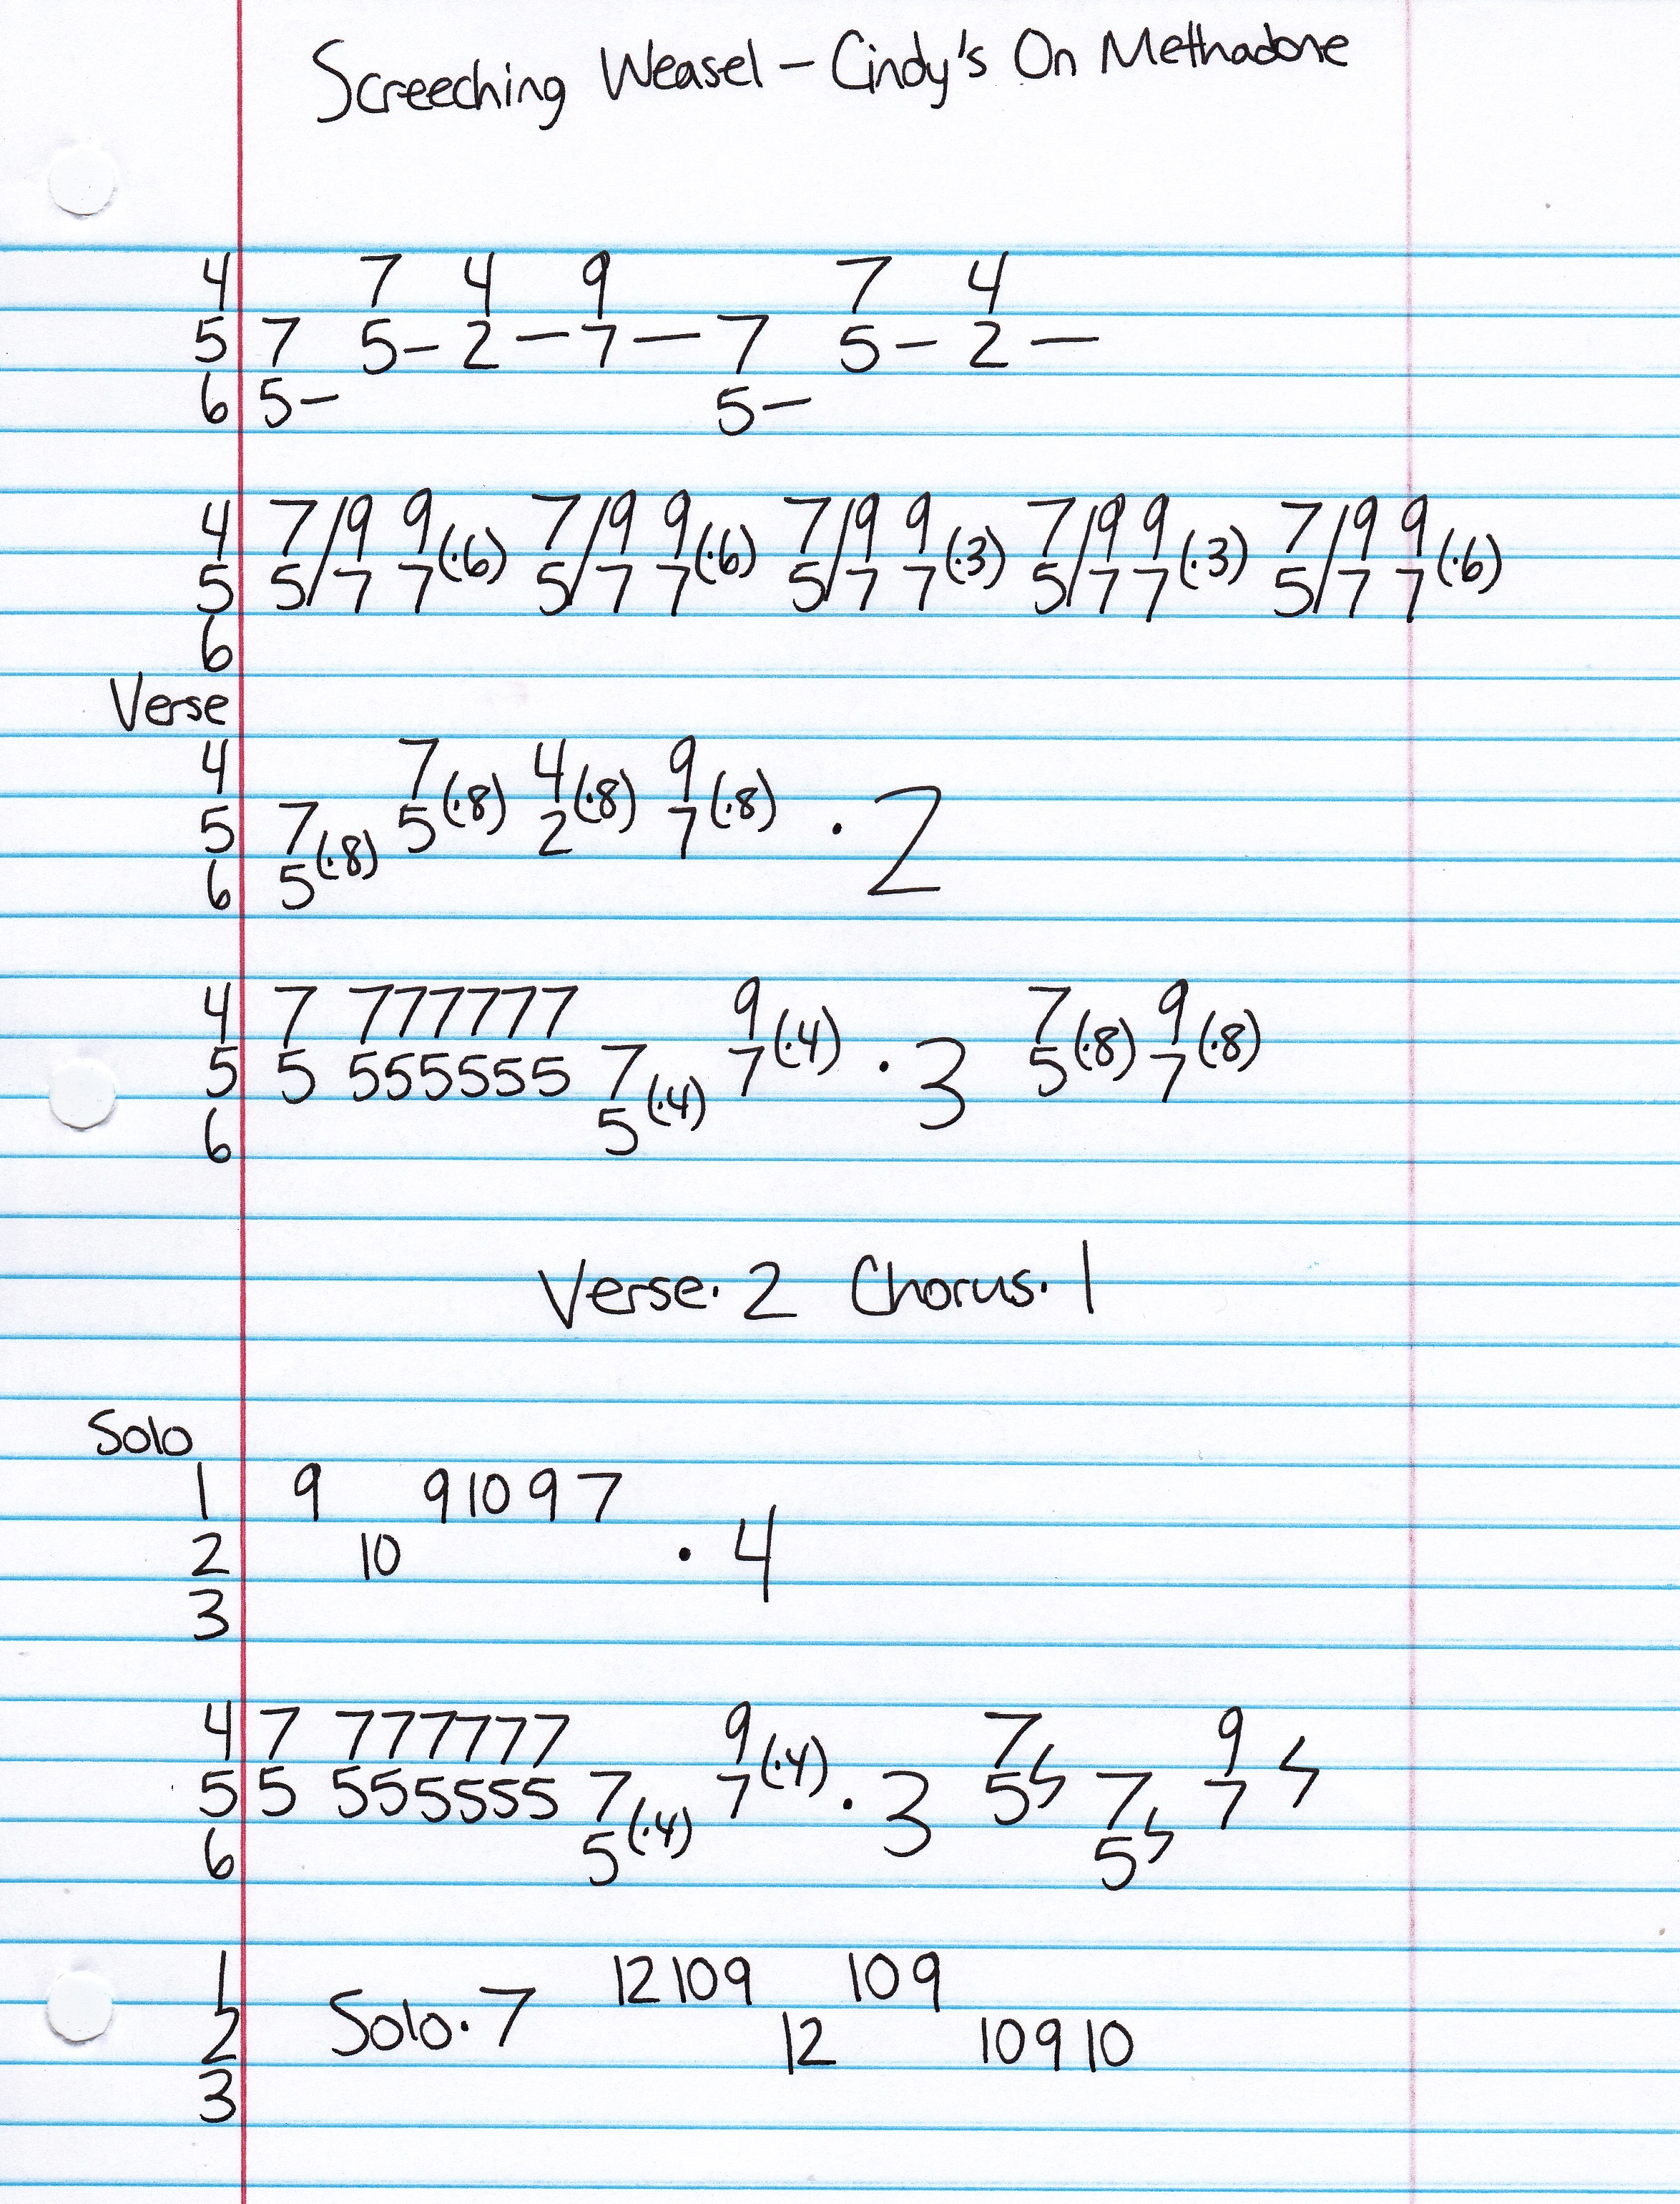 Screeching Weasel - Cindy's On Methadone
4 7 4 9 7 4
5 7 5- 2 - 7 - 7 5 - 2 -
6 5- 5-
4 7/9 9(·6) 7/9 9(·6) 7/9 9(·3) 7/9 9(·3) 7/9 9(·6)
5 5/7 7 5/7 7 5/7 7 5/7 7 5/7 7
6
Verse
4 7(·8) 4(·8) 9(·8)
5 7(·8) 5 2 7 · 2
6 5
4 7 777777 9(·4) 7(·8) 9(·8)
5 5 555555 7(·4) 7 · 3 5 7
6 5
Verse· 2 Chorus· 1
Solo
1 9 9 10 9 7
2 10 · 4
3
4 7 777777 9(·4) 7 9
5 5 555555 7 7 · 3 5ϟ 7 7 ϟ
6 5(·4) 5ϟ
1 12 10 9 10 9
2 Solo· 7 12 10 9 10
3